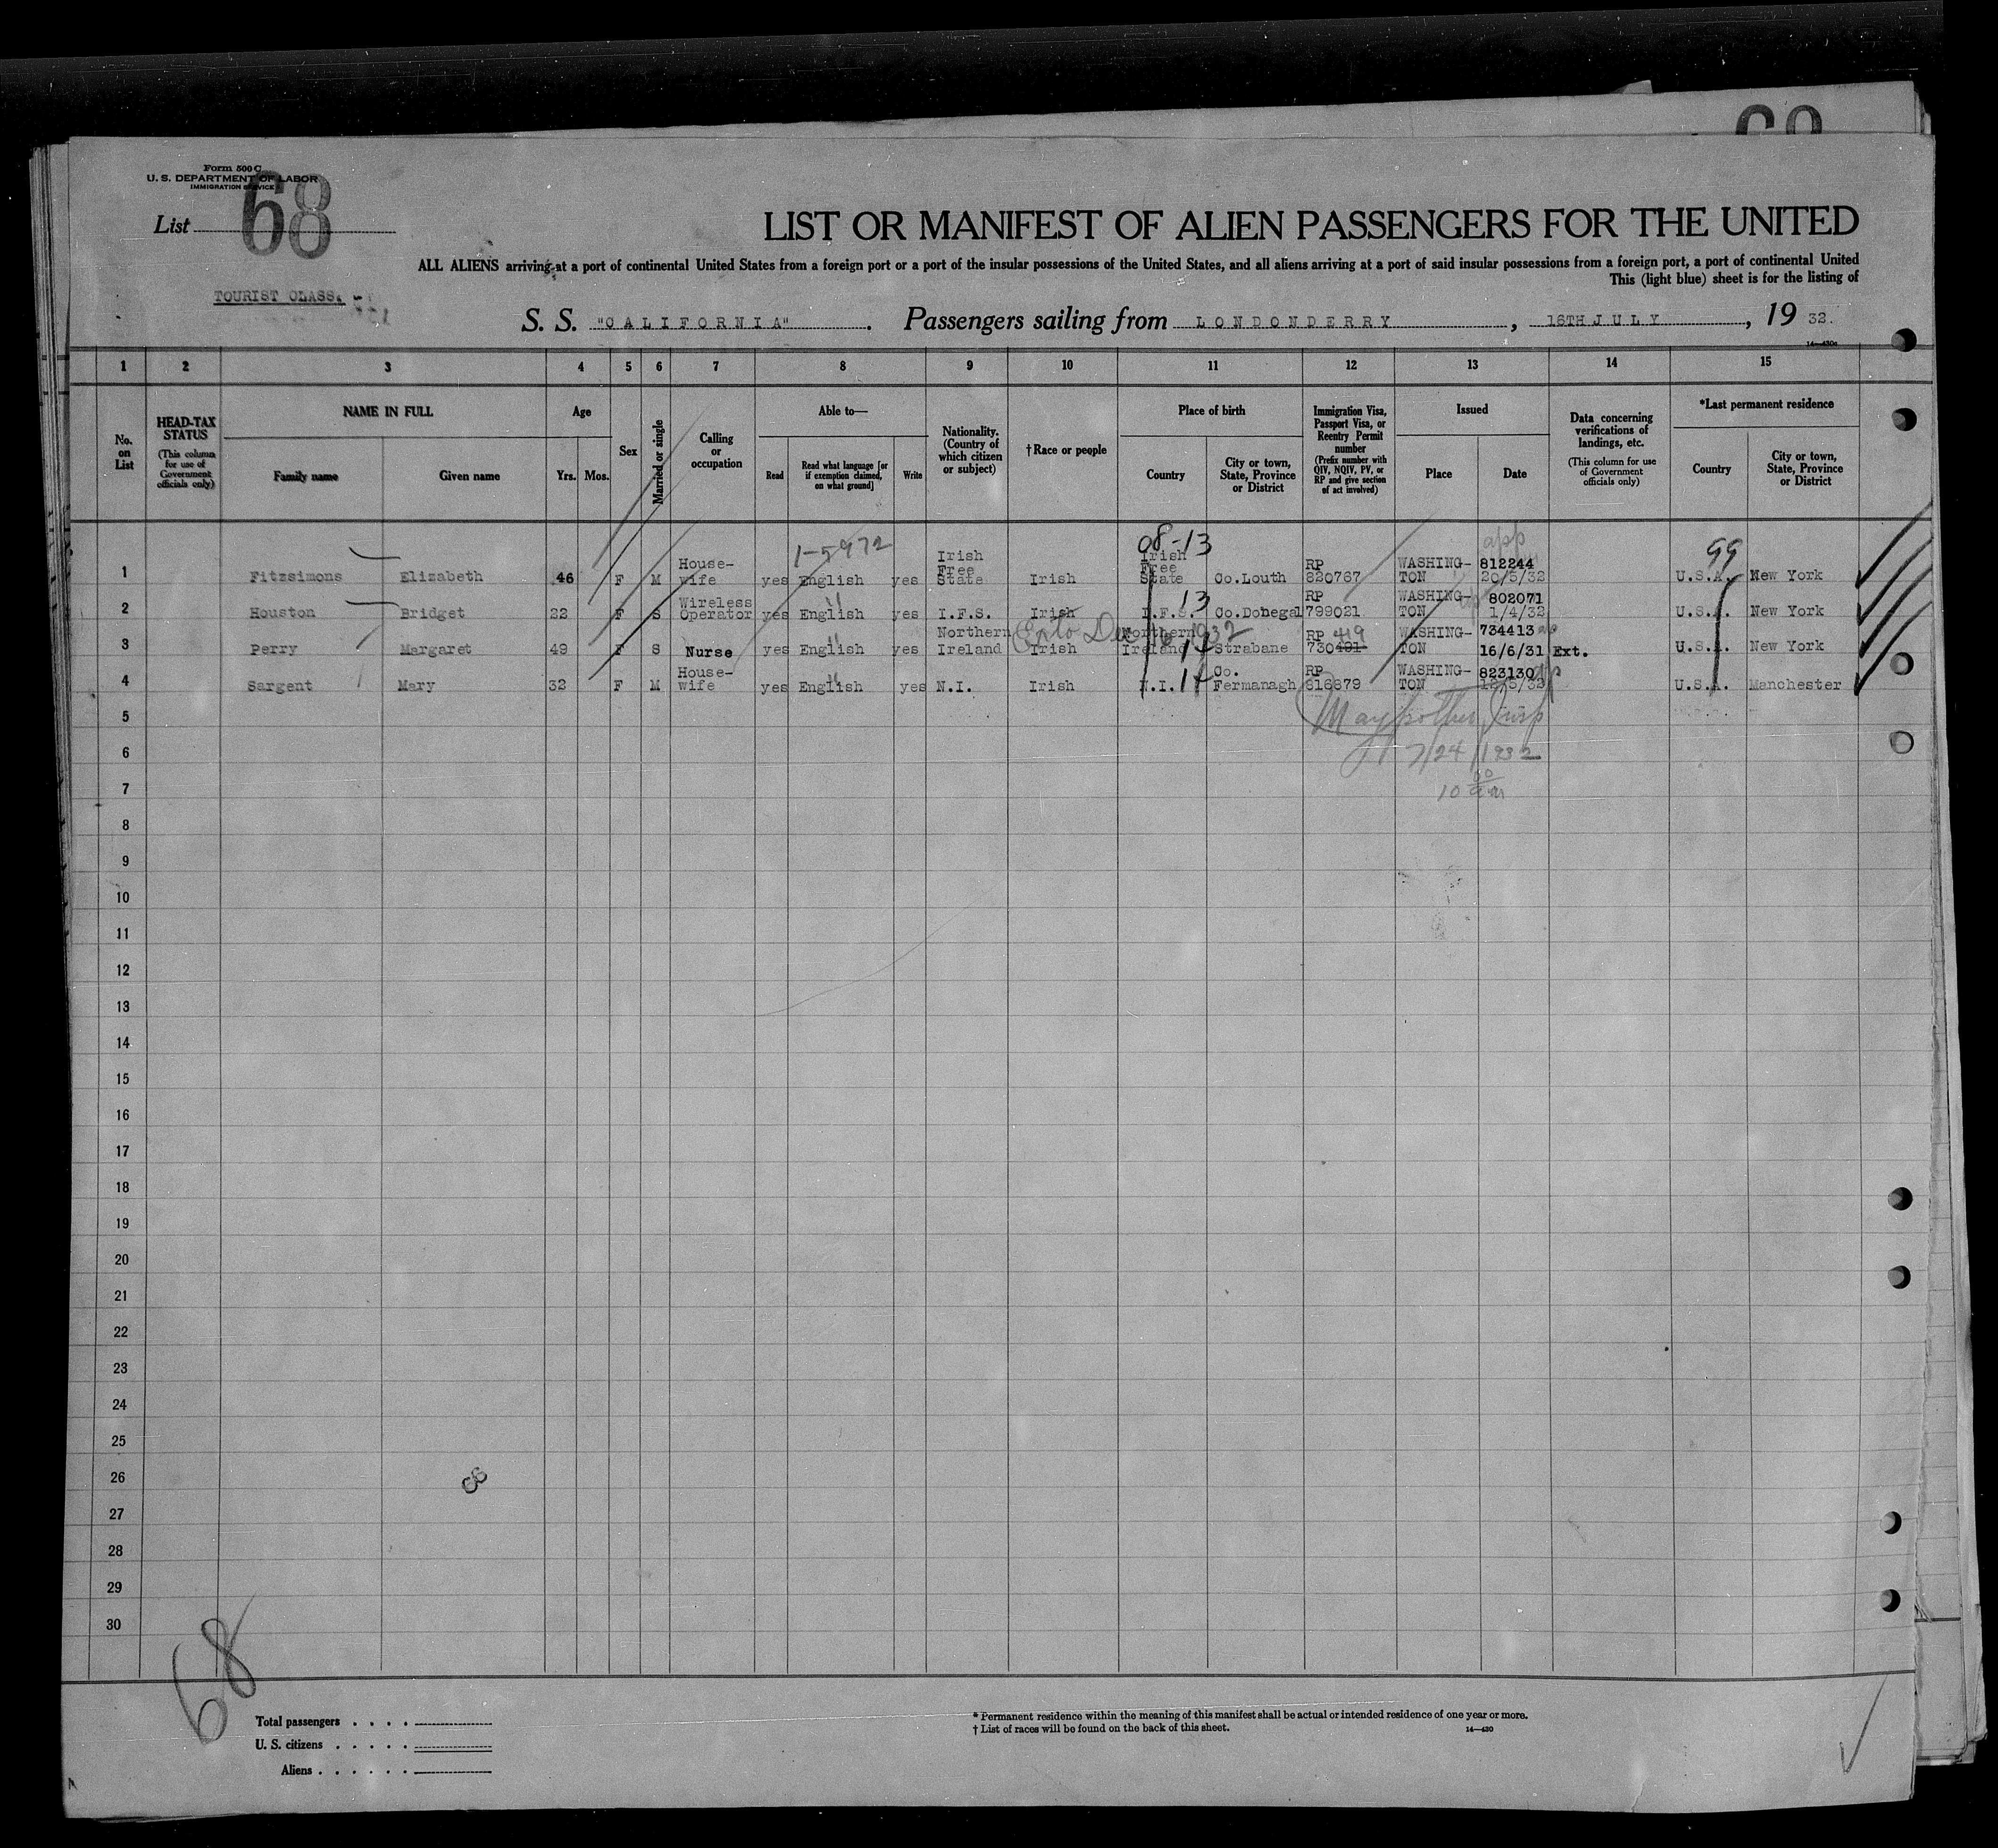 68
Form 500 C
U. S. DEPARTMENT OF LABOR
IMMIGRATION SERVICE
List 68
LIST OR MANIFEST OF ALIEN PASSENGERS FOR THE UNITED
ALL ALIENS arriving at a port of continental United States from a foreign port or a port of the insular possessions of the United States, and all aliens arriving at a port of said insular possessions from a foreign port, a port of continental United
This (light blue) sheet is for the listing of
TOURIST CLASS.
S. S. "CALIFORNIA". Passengers sailing from LONDONDERRY, 16TH JULY, 19 32.
14—430c
1 2 3 4 5 6 7 8 9 10 11 12 13 14 15
No. on List
HEAD-TAX STATUS (This column for use of Government officials only)
NAME IN FULL
Family name Given name
Age
Yrs. Mos.
Sex
Married or single
Calling or occupation
Able to—
Read Read what language [or if exemption claimed, on what ground] Write
Nationality. (Country of which citizen or subject)
†Race or people
Place of birth
Country City or town, State, Province or District
Immigration Visa, Passport Visa, or Reentry Permit number (Prefix number with QIV, NQIV, PV, or RP and give section of act involved)
Issued
Place Date
Data concerning verifications of landings, etc. (This column for use of Government officials only)
*Last permanent residence
Country City or town, State, Province or District
1-5972 08-13 app 99
1 Fitzsimons Elizabeth 46 F M House-wife yes English yes Irish Free State Irish Irish Free State Co.Louth RP 820767 WASHING-TON 812244 20/5/32 U.S.A. New York
2 Houston Bridget 22 F S Wireless Operator yes English yes I.F.S. Irish I.F.S. 13 Co.Donegal RP 799021 WASHING-TON 802071 1/4/32 U.S.A. New York
Dec 16 1932
3 Perry Margaret 49 F S Nurse yes English yes Northern Ireland Irish Northern Ireland 14 Strabane RP 419 730491 WASHING-TON 734413 16/6/31 Ext. U.S.A. New York
4 Sargent Mary 32 F M House-wife yes English yes N.I. Irish N.I. 14 Co. Fermanagh RP 816879 WASHING-TON 823130 U.S.A. Manchester
5
Insp
6
7/24/1932
7
10 00 am
8
9
10
11
12
13
14
15
16
17
18
19
20
21
22
23
24
25
26
27
28
29
30
68
Total passengers . . . .
U. S. citizens . . . . .
Aliens . . . . . .
* Permanent residence within the meaning of this manifest shall be actual or intended residence of one year or more.
† List of races will be found on the back of this sheet.
14—430